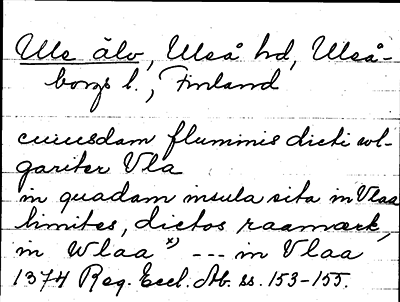 Ule älv, Uleå hd, Uleå-
borgs l., Finland
cuiusdam fluminis dicti wl-
gariter Vla
in quadam insula sita in Vlaa
limites, dictos raamærk,
in Wlaa *) --- in Vlaa
1374 Reg. Eccl. Ab. ss. 153-155.